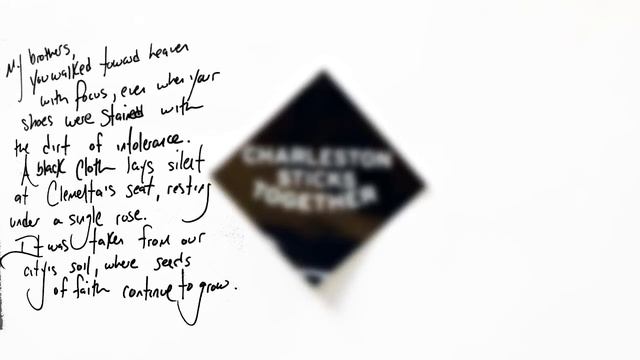 My brothers,
you walked toward heaven
with focus, even when your
shoes were stained with
the dirt of intolerance.
A black cloth lays silent
at Clementa's seat, resting
under a single rose.
It was taken from our
city's soil, where seeds
of faith continue to grow.
CHARLESTON
STICKS
TOGETHER